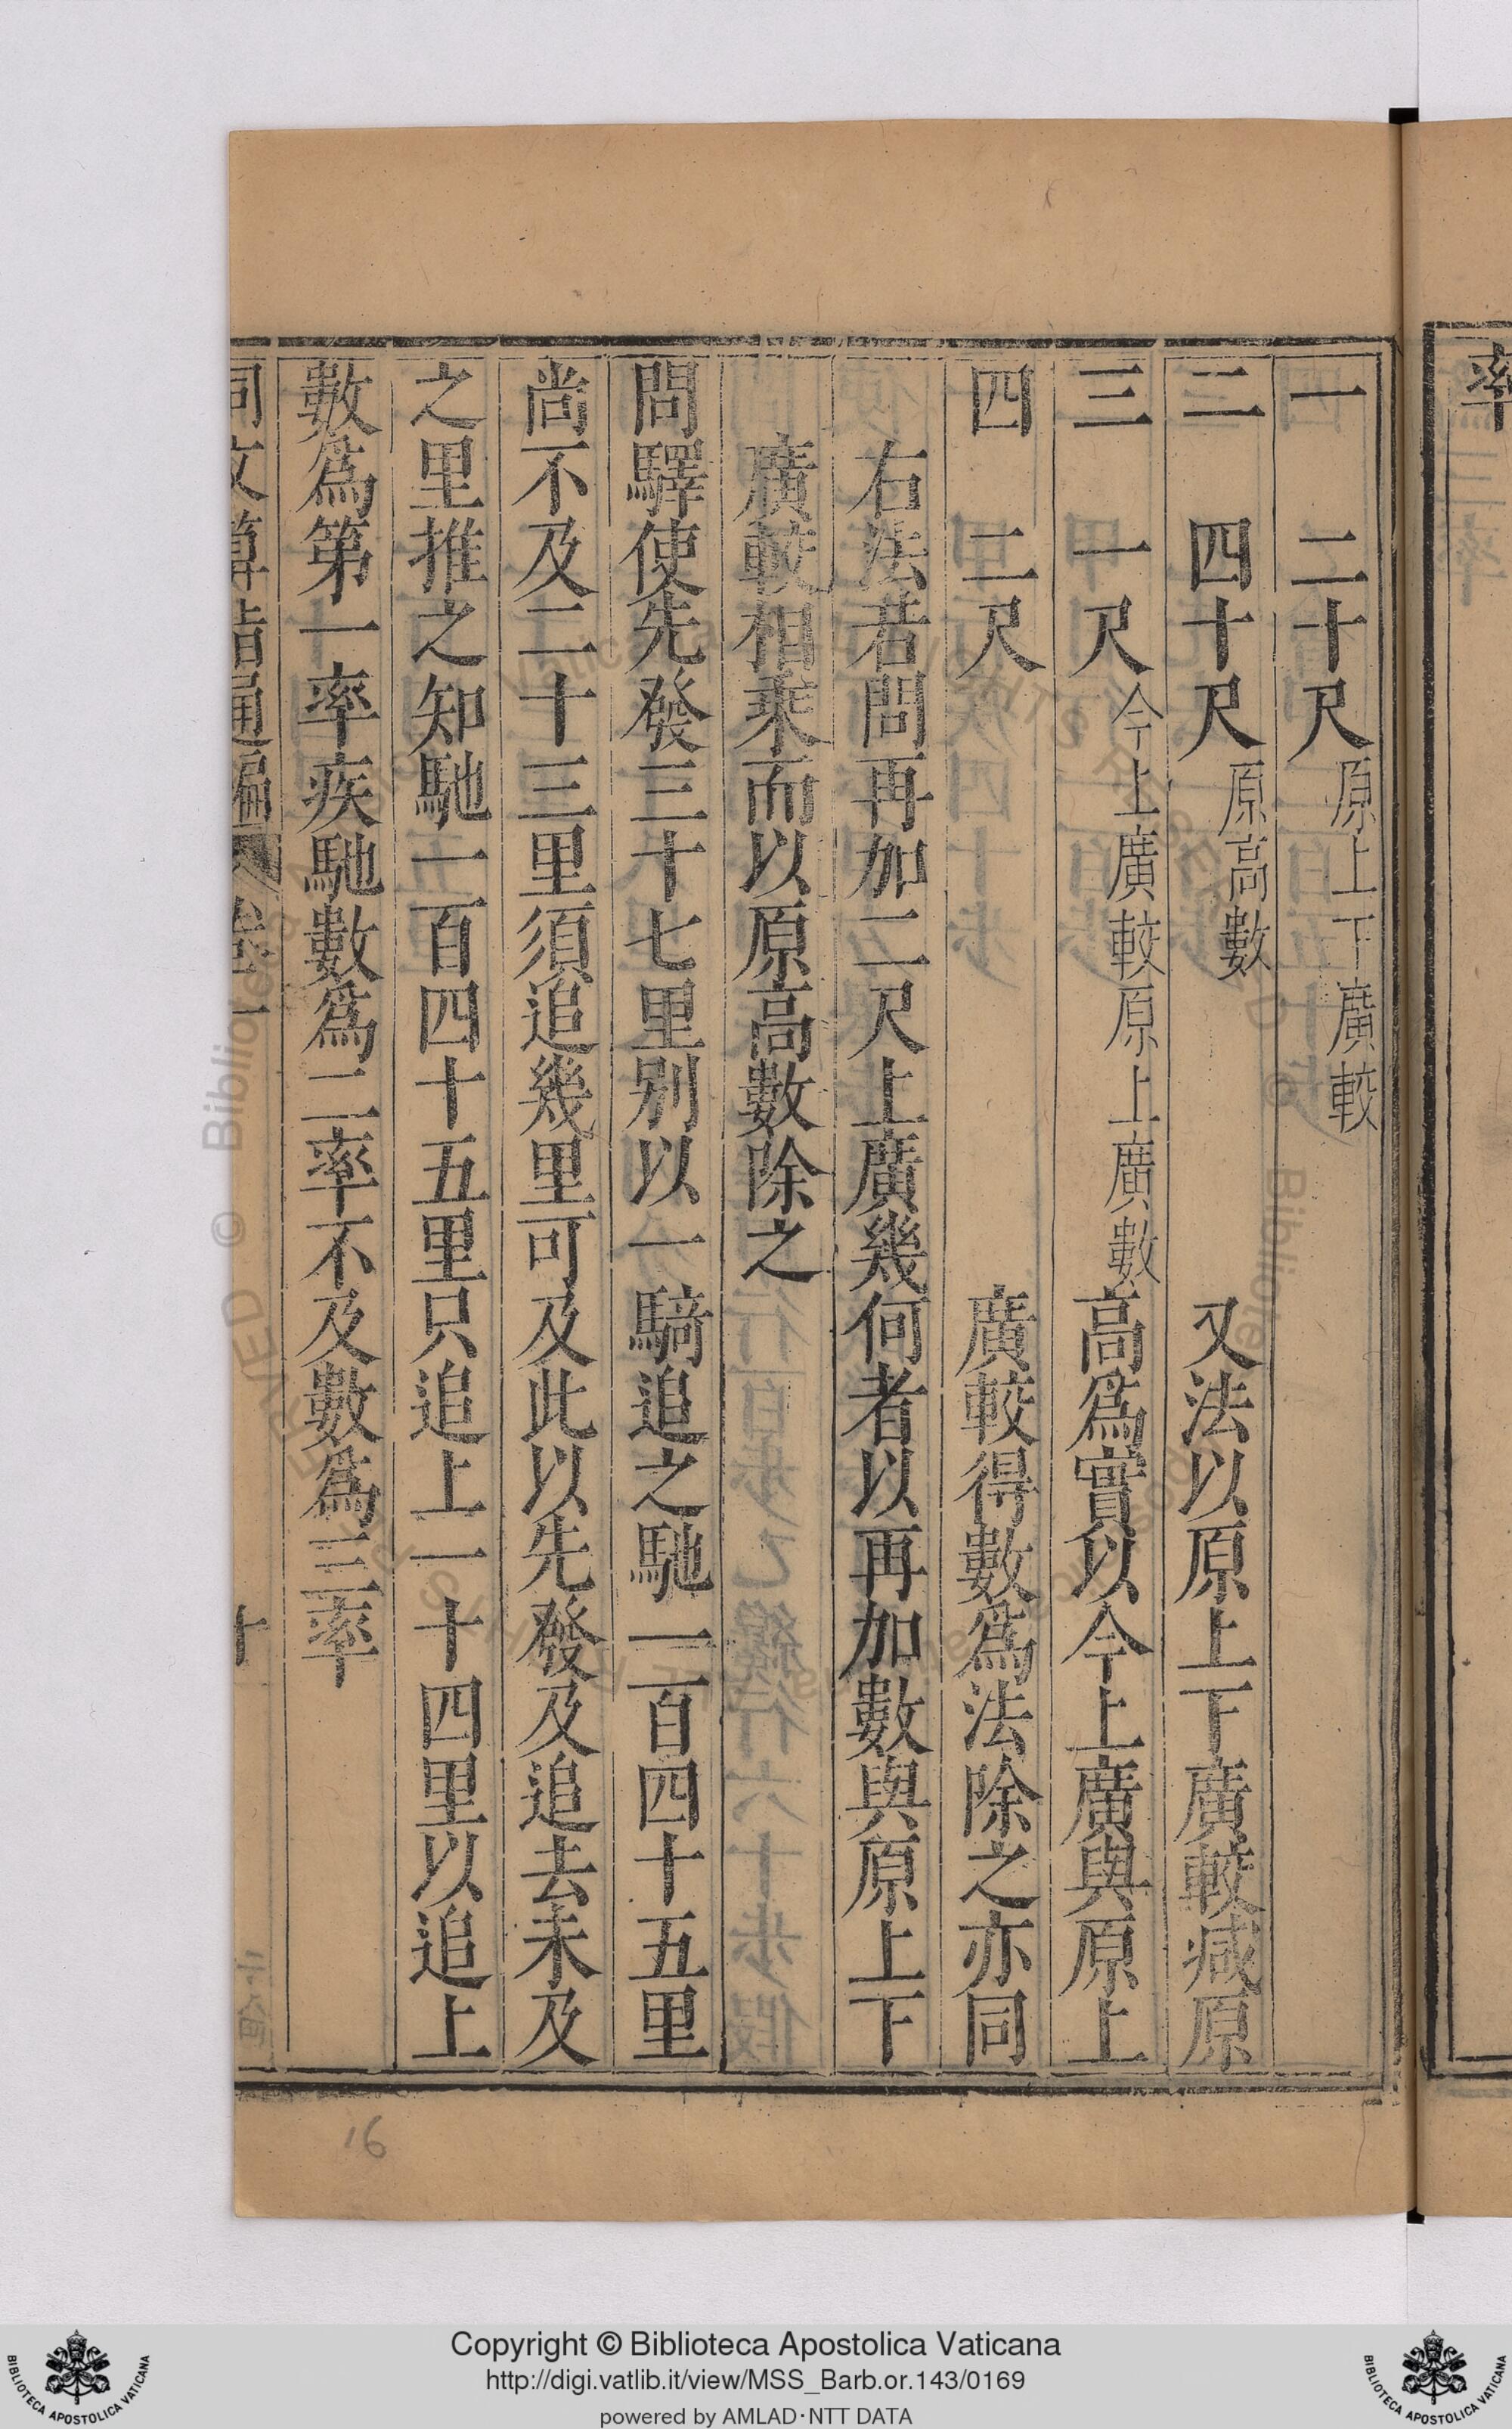 一　二十尺原上下廣較
二　四十尺原高數　又法以原上下廣較減原
三　一尺今上廣較原上廣數　高爲實以今上廣與原上
四　二尺　廣較得數爲法除之亦同
右法若問再加二尺上廣幾何者以再加數與原上下
廣較相乘而以原高數除之
問驛使先發三十七里別以一騎追之馳一百四十五里
尚不及二十三里須追幾里可及此以先發及追去未及
之里推之知馳一百四十五里只追上一十四里以追上
數爲第一率疾馳數爲二率不及數爲三率
同文算指通編 卷一 十
率
16
Copyright © Biblioteca Apostolica Vaticana
http://digi.vatlib.it/view/MSS_Barb.or.143/0169
powered by AMLAD·NTT DATA
BIBLIOTECA APOSTOLICA VATICANA
BIBLIOTECA APOSTOLICA VATICANA